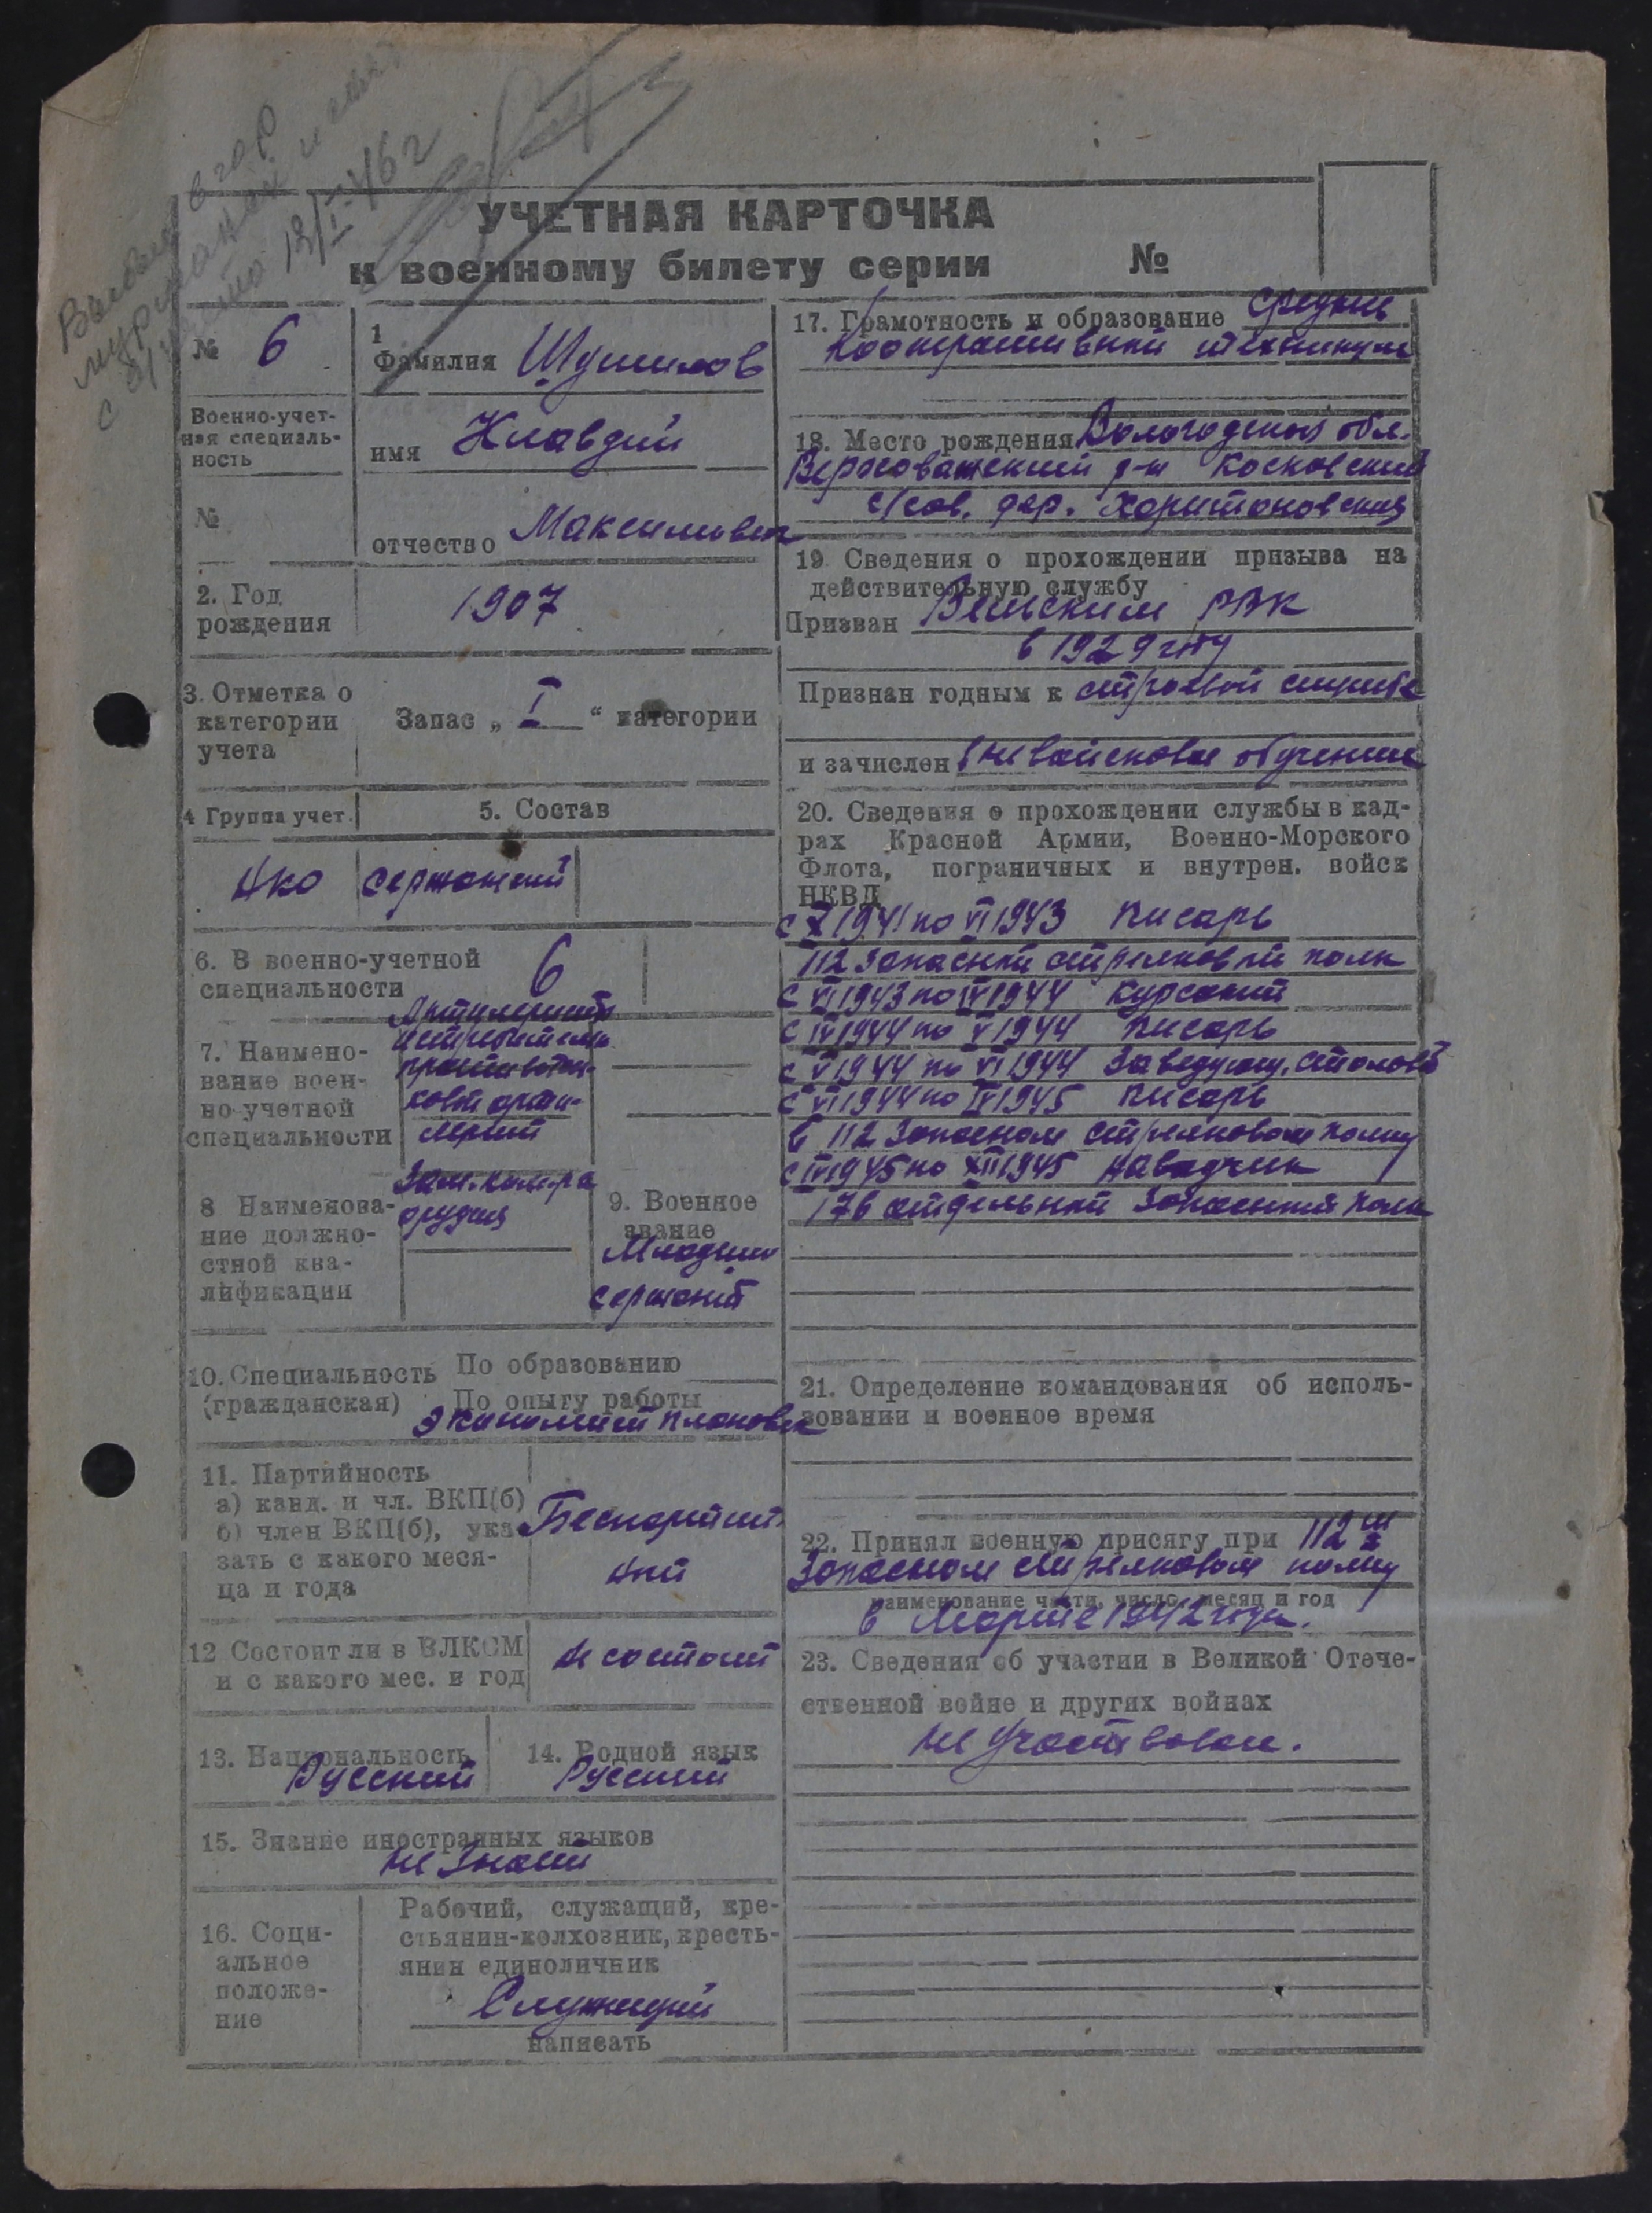 в гор
Мурманск и снят
с в/учета 18/I-46 г
УЧЕТНАЯ КАРТОЧКА
к военному билету серии №
№ 6
Военно-учет-
ная специаль-
ность
№
1
Фамилия Шушилов
имя Клавдий
отчество Максимович
2. Год
рождения
1907
3. Отметка о
категории
учета
Запас „ I “ категории
4 Группа учет.
5. Состав
нко сержантский
6. В военно-учетной
специальности
6
7. Наимено-
вание воен-
но-учетной
специальности
Артилерист
истребитель
противотан-
ковой арти-
лерии
8 Наименова-
ние должно-
стной ква-
лификации
Зам. ком-ра
орудия
9. Военное
звание
Младший
сержант
10. Специальность По образованию
(гражданская) По опыту работы
экономист плановик
11. Партийность
а) канд. и чл. ВКП(б)
б) член ВКП(б), ука-
зать с какого меся-
ца и года
Беспартий
ный
12 Состоит ли в ВЛКСМ
и с какого мес. и год
не состоит
13. Национальность
Русский
14. Родной язык
Русский
15. Знание иностранных языков
не знает
16. Соци-
альное
положе-
ние
Рабочий, служащий, кре-
стьянин-колхозник, кресть-
янин единоличник
Служащий
написать
17. Грамотность и образование средние
Кооперативный техникум
18. Место рождения Вологодская обл.
Верховажский р-н Косковский
с/сов. дер. Харитоновская
19 Сведения о прохождении призыва на
действительную службу
Призван Вельским РВК
в 1929 году
Признан годным к строевой службе
и зачислен вневойсковое обучение
20. Сведения о прохождении службы в кад-
рах Красной Армии, Военно-Морского
Флота, пограничных и внутрен. войск
НКВД
с X 1941 по VI 1943 писарь
112 запасный стрелковый полк
с VI 1943 по IV 1944 курсант
с IV 1944 по V 1944 писарь
с V 1944 по VI 1944 заведующ. столовой
с VI 1944 по IV 1945 писарь
в 112 запасном стрелковом полку
с IV 1945 по XII 1945 наводчик
176 отдельный запасный полк
21. Определение командования об исполь-
зовании в военное время
22. Принял военную присягу при 112 м
запасном стрелковом полку
наименование части, число, месяц и год
в Марте 1942 года.
23. Сведения об участии в Великой Отече-
ственной войне и других войнах
не участвовал.